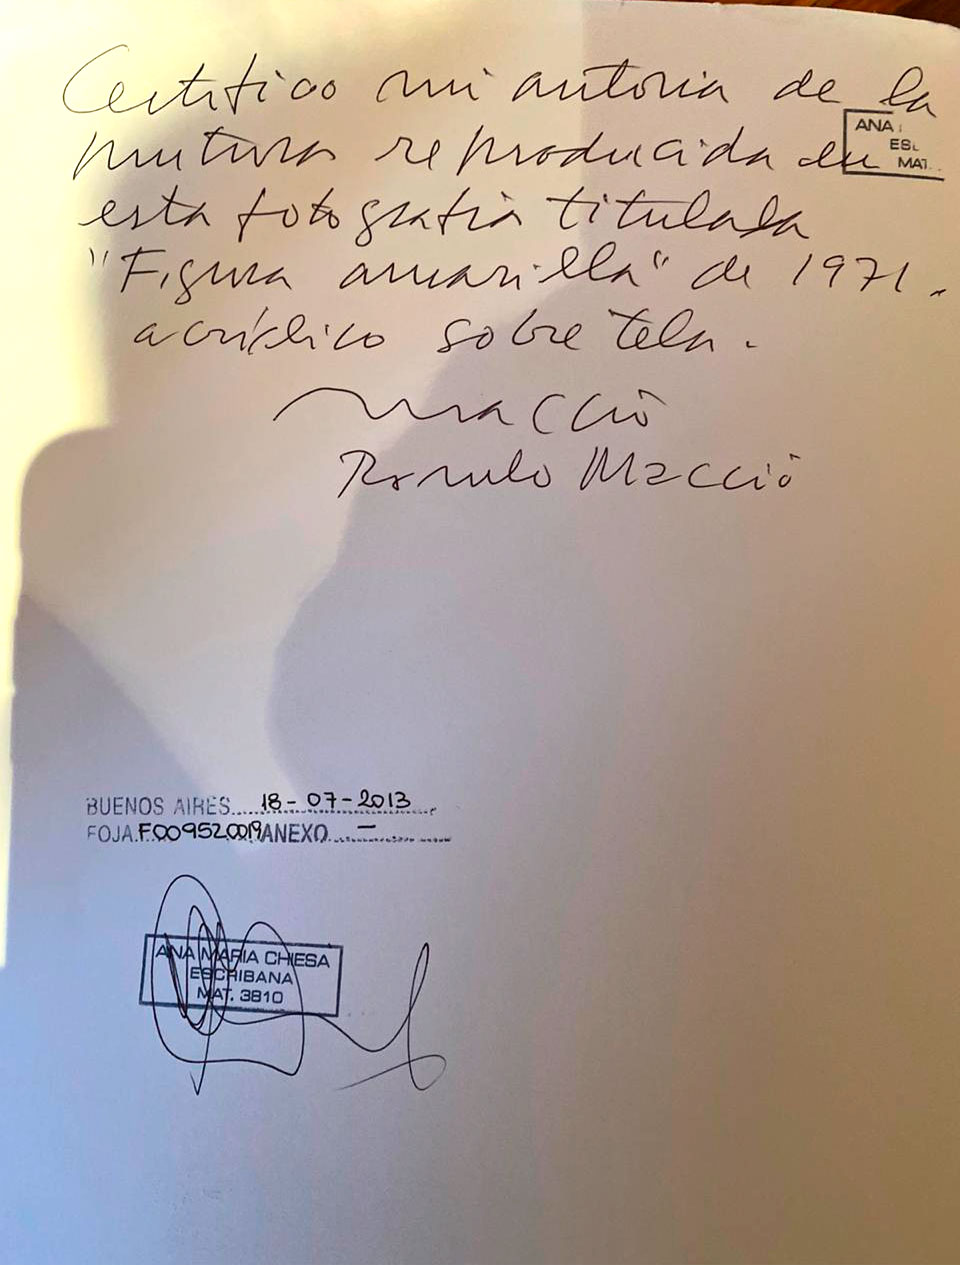 Certifico mi autoria de la
pintura reproducida en
esta fotografia titulada
"Figura amarilla" de 1971.
acrílico sobre tela.
Macció
Romulo Macció
ANA
ESC
MAT.
BUENOS AIRES 18-07-2013
FOJA F009520019 ANEXO —
ANA MARIA CHIESA
ESCRIBANA
MAT. 3810